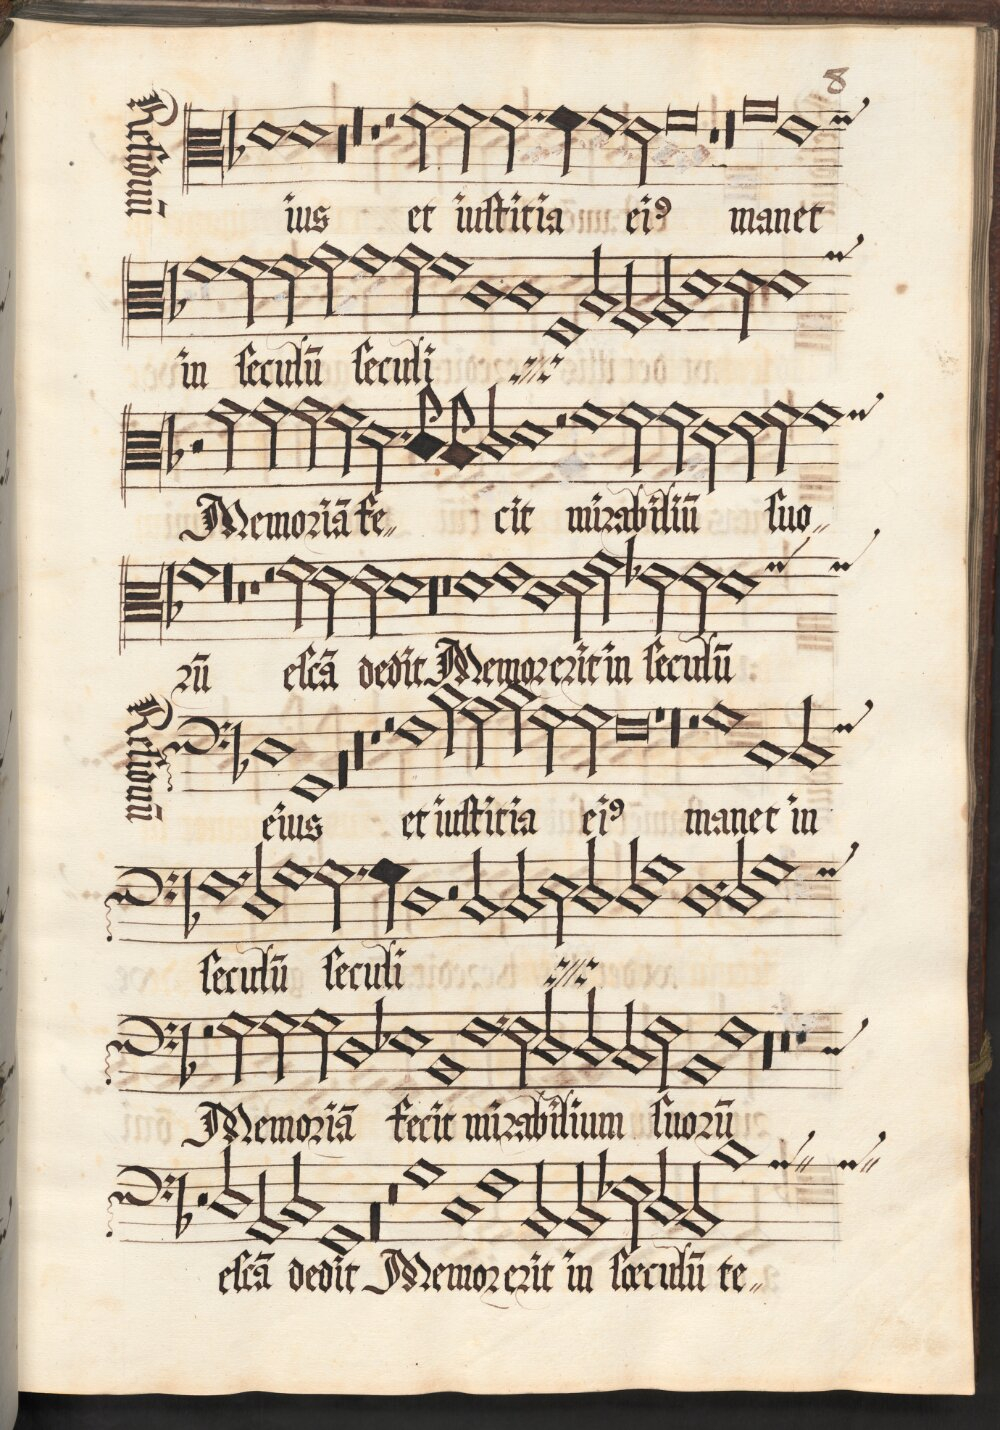 8
Residuū
ius et iustitia ei⁹ manet
in seculū seculi
Memoriā fe„ cit mirabiliū suo„
rū escā dedit Memor erit in seculū
Residuū
eius et iustitia ei⁹ manet in
seculū seculi
Memoriā fecit mirabilium suorū
escā dedit Memor erit in sœculū te„